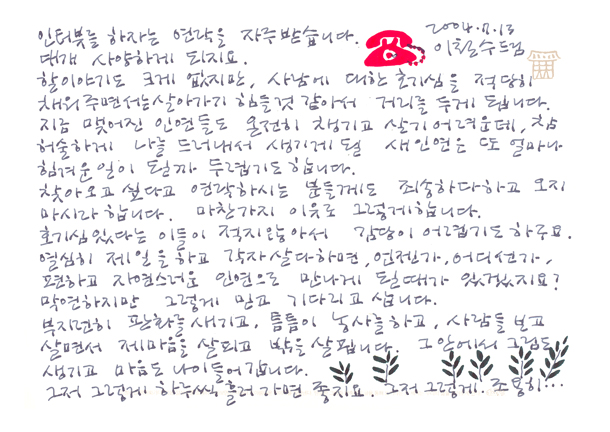 인터뷰를 하자는 연락을 자주 받습니다.
2004.7.13
이철수드림
대개 사양하게 되지요.
할 이야기도 크게 없지만, 사람에 대한 호기심을 적당히
채워주면서는 살아가기 힘들것 같아서 거리를 두게 됩니다.
지금 맺어진 인연들도 온전히 챙기고 살기 어려운데, 참
허술하게 나를 드러내서 생기게 될 새 인연은 또 얼마나
힘겨운 일이 될까 두렵기도 합니다.
찾아오고 싶다고 연락하시는 분들께도 죄송하다하고 오지
마시라 합니다. 마찬가지 이유로 그렇게 합니다.
호기심 있다는 이들이 적지 않아서 감당이 어렵기도 하구요.
열심히 제 일을 하고 각자 살다 하면, 언젠가, 어디선가,
편하고 자연스러운 인연으로 만나게 될 때가 있겠지요?
막연하지만 그렇게 믿고 기다리고 십니다.
부지런히 판화를 새기고, 틈틈이 농사를 하고, 사람들 보고
살면서 제 마음을 살피고 밖을 살핍니다. 그 안에서 그림도
생기고 마음도 나이들어 갑니다.
그저 그렇게 하루씩 흘러가면 좋지요. 그저 그렇게. 조용히…